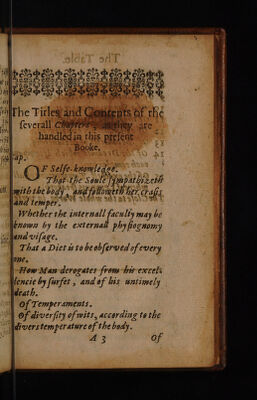 The Titles and Contents of the
severall Chapters, as they are
handled in this present
Booke.
ap.
OF Selfe-knowledge.
That the Soule sympathizeth
with the body, and followeth her crasis
and temper.
Whether the internall faculty may be
known by the externall physiognomy
and visage.
That a Diet is to be observed of every
one.
How Man derogates from his excel-
lencie by surfet, and of his untimely
death.
Of Temperaments.
Of diversity of wits, according to the
divers temperature of the body.
A 3 Of